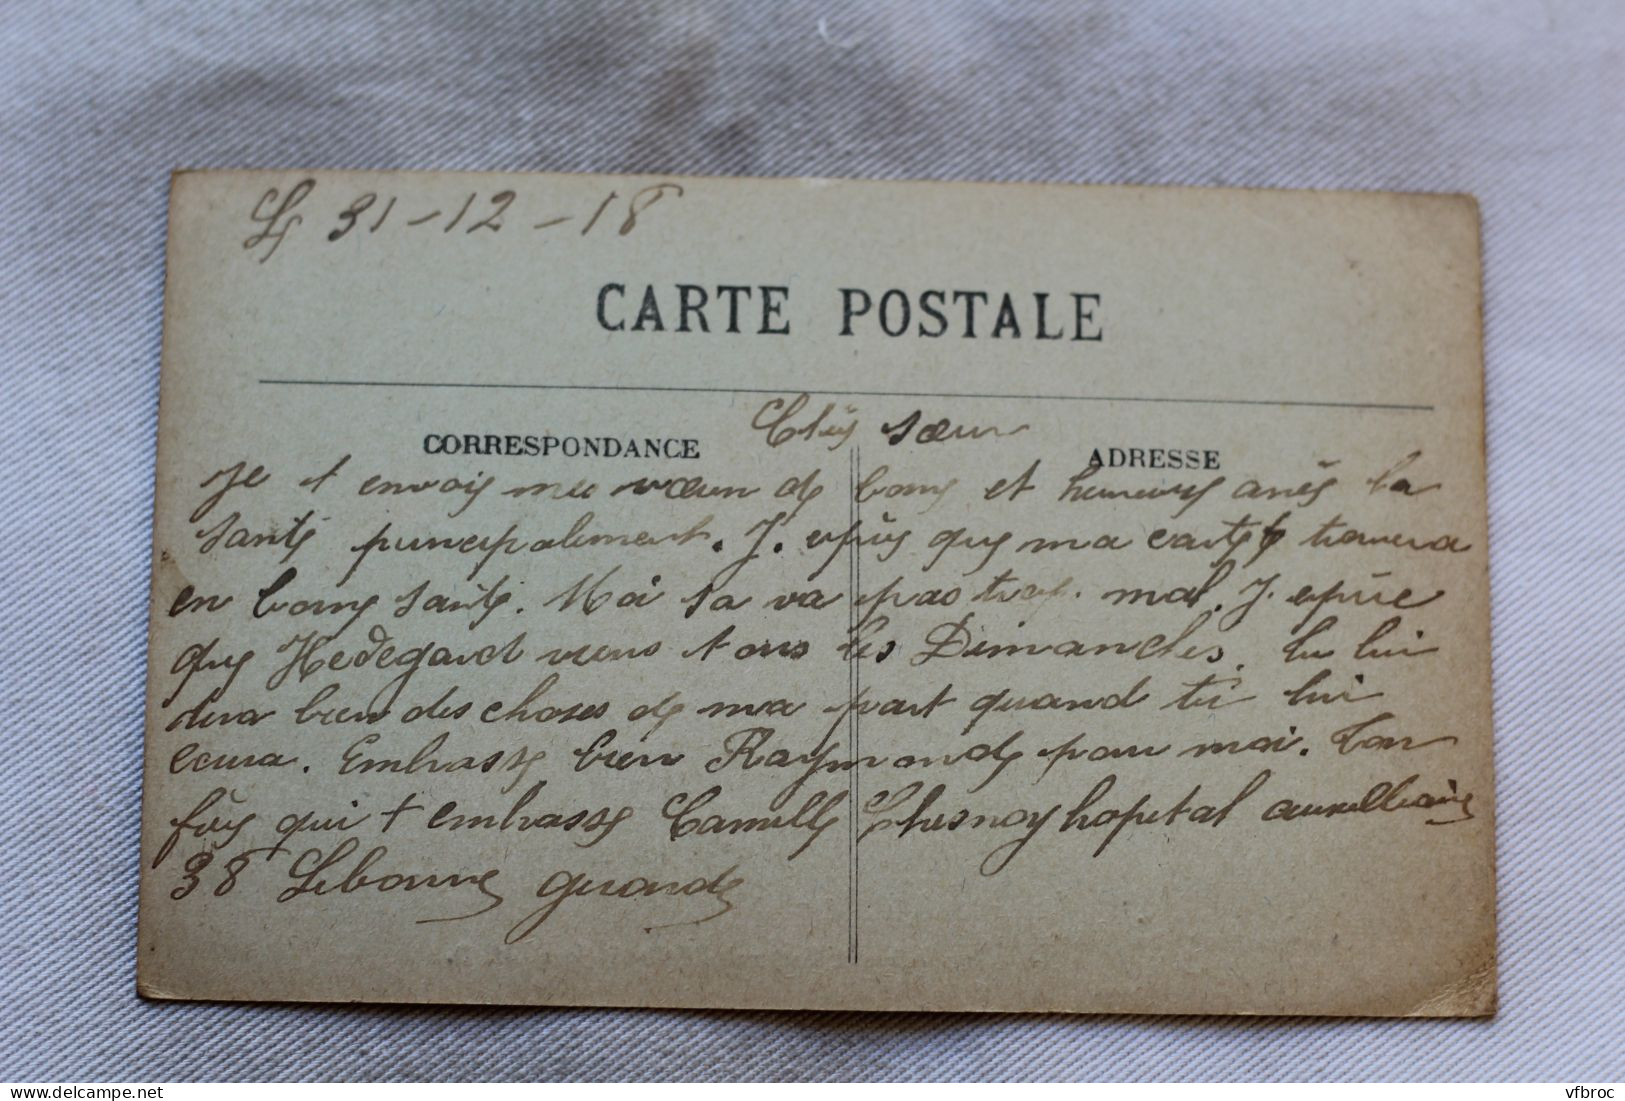 Le 31-12-18
CARTE POSTALE
Cher sœur
CORRESPONDANCE
ADRESSE
Je t envois mes vœux de bone et heureuse anés la
santé principalement. J. espére que ma carte te trouvera
en bone santé. Moi sa va pas trop mal. J. espére
que Hedegard viens t ous les Dimanches. tu lui
dira bien des choses de ma part quand tu lui
ecrira. Embrasse bien Raymonde pour moi. Ton
frére qui t embrasse Camille Chesnoy hopital auxilliaire
38 Libourne gironde
vfbroc